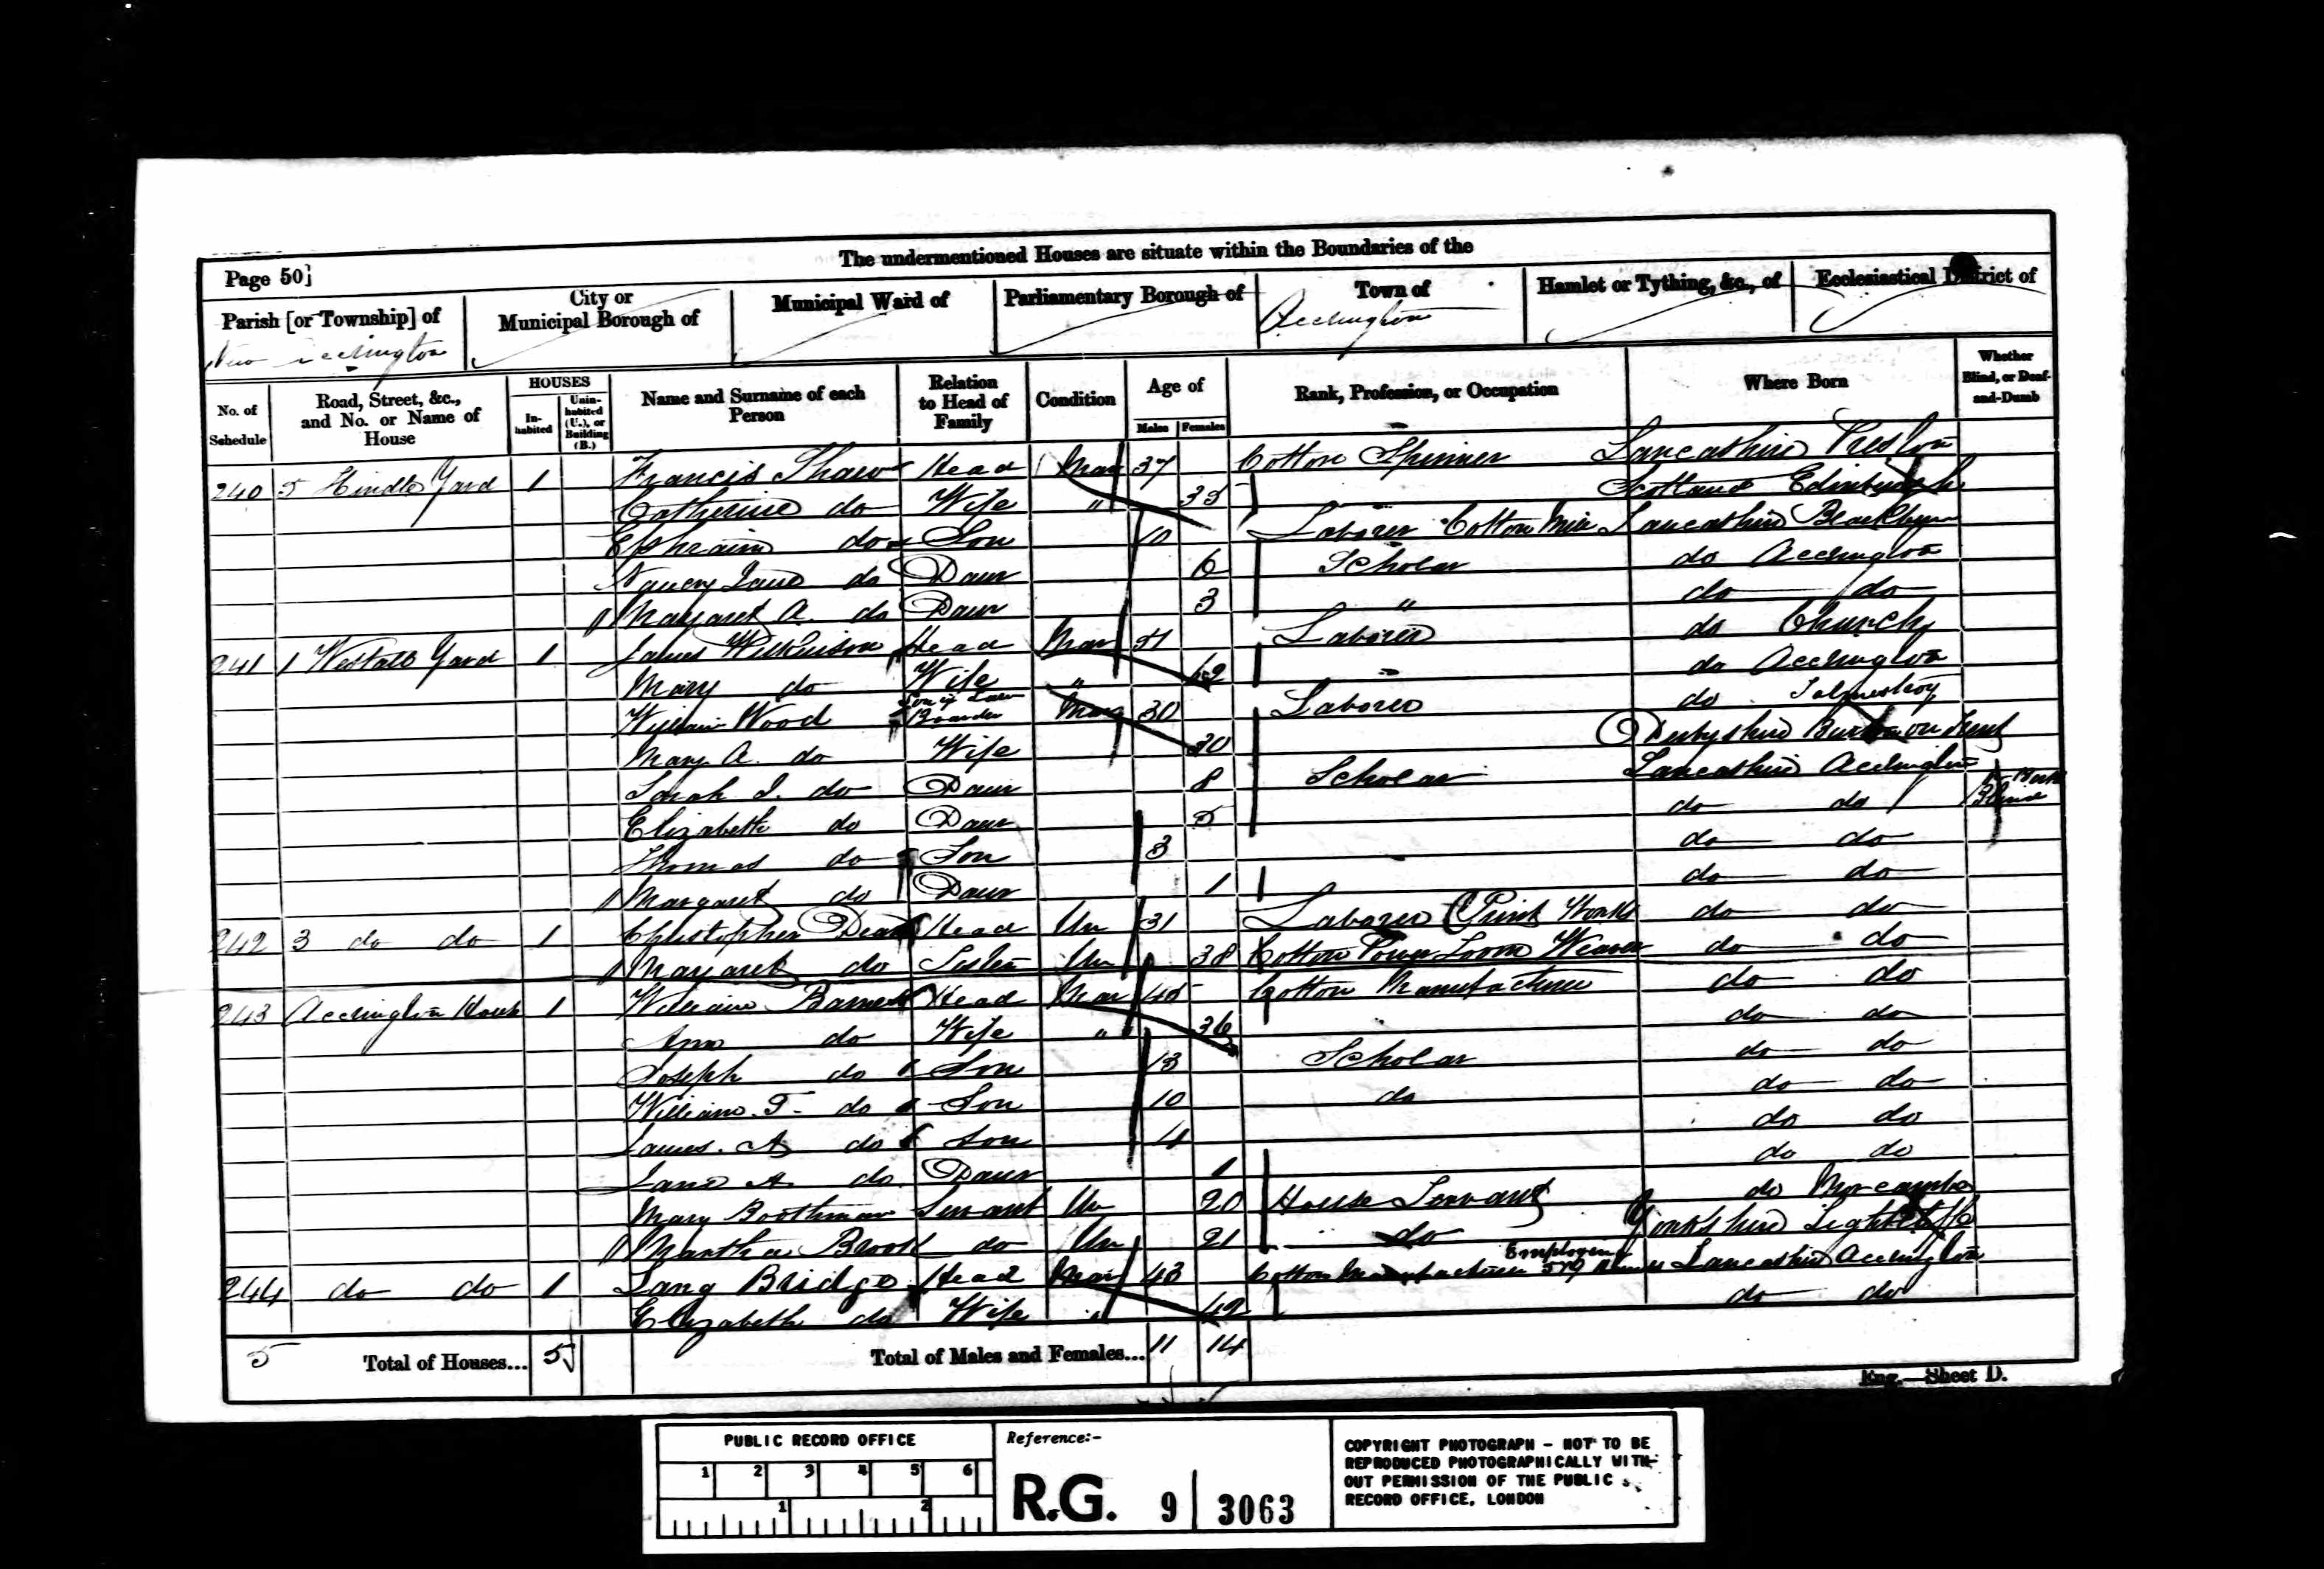 The undermentioned Houses are situate within the Boundaries of the
Page 50]
Parish [or Township] of
City or Municipal Borough of
Municipal Ward of
Parliamentary Borough of
Town of
Hamlet or Tything, &c., of
Ecclesiastical District of
New Accrington
Accrington
No. of Schedule
Road, Street, &c., and No. or Name of House
HOUSES
In-habited
Unin-habited (U.), or Building (B.)
Name and Surname of each Person
Relation to Head of Family
Condition
Age of
Males
Females
Rank, Profession, or Occupation
Where Born
Whether Blind, or Deaf-and-Dumb
240 5 Hindle Yard 1 Francis Shaw Head Mar 37 Cotton Spinner Lancashire Preston
Catherine do Wife " 35 Scotland Edinburgh
Ephraim do Son 10 Laborer Cotton Mill Lancashire Blackburn
Nancy Jane do Daur 6 Scholar do Accrington
Margaret A. do Daur 3 " do do
241 1 Westall Yard 1 James Wilkinson Head Mar 51 Laborer do Church
Mary do Wife " do Accrington
William Wood Son in Law Boarder Mar 30 Laborer do
Mary A. do Wife 30 Derbyshire Burton on Trent
Sarah J. do Daur 8 Scholar Lancashire Accrington
Elizabeth do Daur 5 do do Blind
Thomas do Son 3 do do
Margaret do Daur 1 do do
242 3 do do 1 Christopher Dean Head Un 31 Laborer (Print Works do do
Margaret do Sister Un 38 Cotton Power Loom Weaver do do
243 Accrington House 1 William Head Mar 45 Cotton Manufacturer do do
Ann do Wife " 36 do do
Joseph do Son 13 Scholar do do
William. T. do Son 10 do do do
James. A do Son 4 do do
Jane A. do Daur 1 do do
Mary Boothman Servant Un 20 House Servant do Morecambe
Martha Brook do Un 21 do Yorkshire Lightcliffe
244 do do 1 Lang Bridge Head Mar 43 Cotton Manufacturer Employing 579 Lancashire Accrington
Elizabeth do Wife " 42 do do
5 Total of Houses... 5 Total of Males and Females... 11 14
Eng.—Sheet D.
PUBLIC RECORD OFFICE
1 2 3 4 5 6
1 2
Reference:-
R.G. 9 3063
COPYRIGHT PHOTOGRAPH - NOT TO BE
REPRODUCED PHOTOGRAPHICALLY WITH-
OUT PERMISSION OF THE PUBLIC
RECORD OFFICE, LONDON